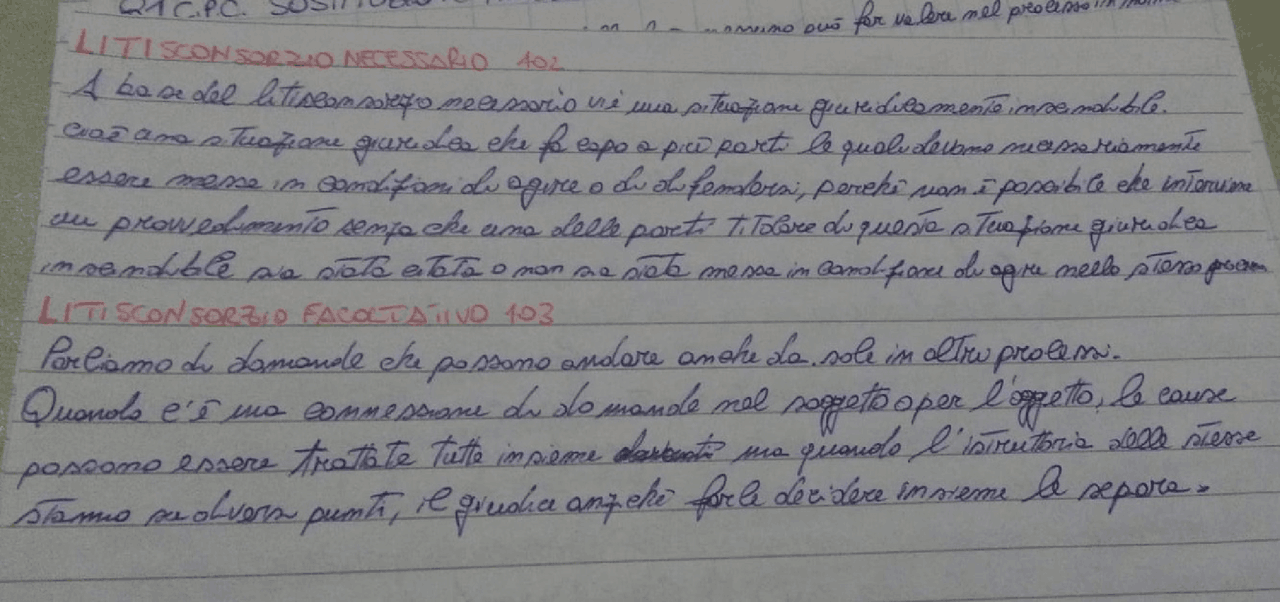 81 C.P.C. può far valere nel processo in nome
LITISCONSORZIO NECESSARIO 102
A base del litisconsorzio necessario vi è una situazione giuridicamente inscindibile.
cioè una situazione giuridica che fa capo a più parti le quali devono necessariamente
essere messe in condizioni di agire o di difendersi, perché non è possibile che intervenga
un provvedimento senza che una delle parti titolare di questa situazione giuridica
inscindibile sia stata citata o non sia stata messa in condizione di agire nello stesso
LITISCONSORZIO FACOLTATIIVO 103
Parliamo di domande che possono andare anche da sole in altri
Quando c'è una connessione di domande nel soggetto o per l'oggetto, le cause
possono essere trattate tutte insieme ma quando l'istruttoria delle stesse
stanno su diversi punti, il giudice anziché farle decidere insieme le separa.